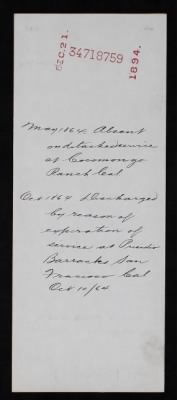 DEC. 21.
34718759
1894.
May 1864. Absent
on detached service
at Cocomongo
Ranch Cal
Oct 1864 Discharged
by reason of
expiration of
service at Presidio
Barracks San
Francisco Cal
Oct 10/64